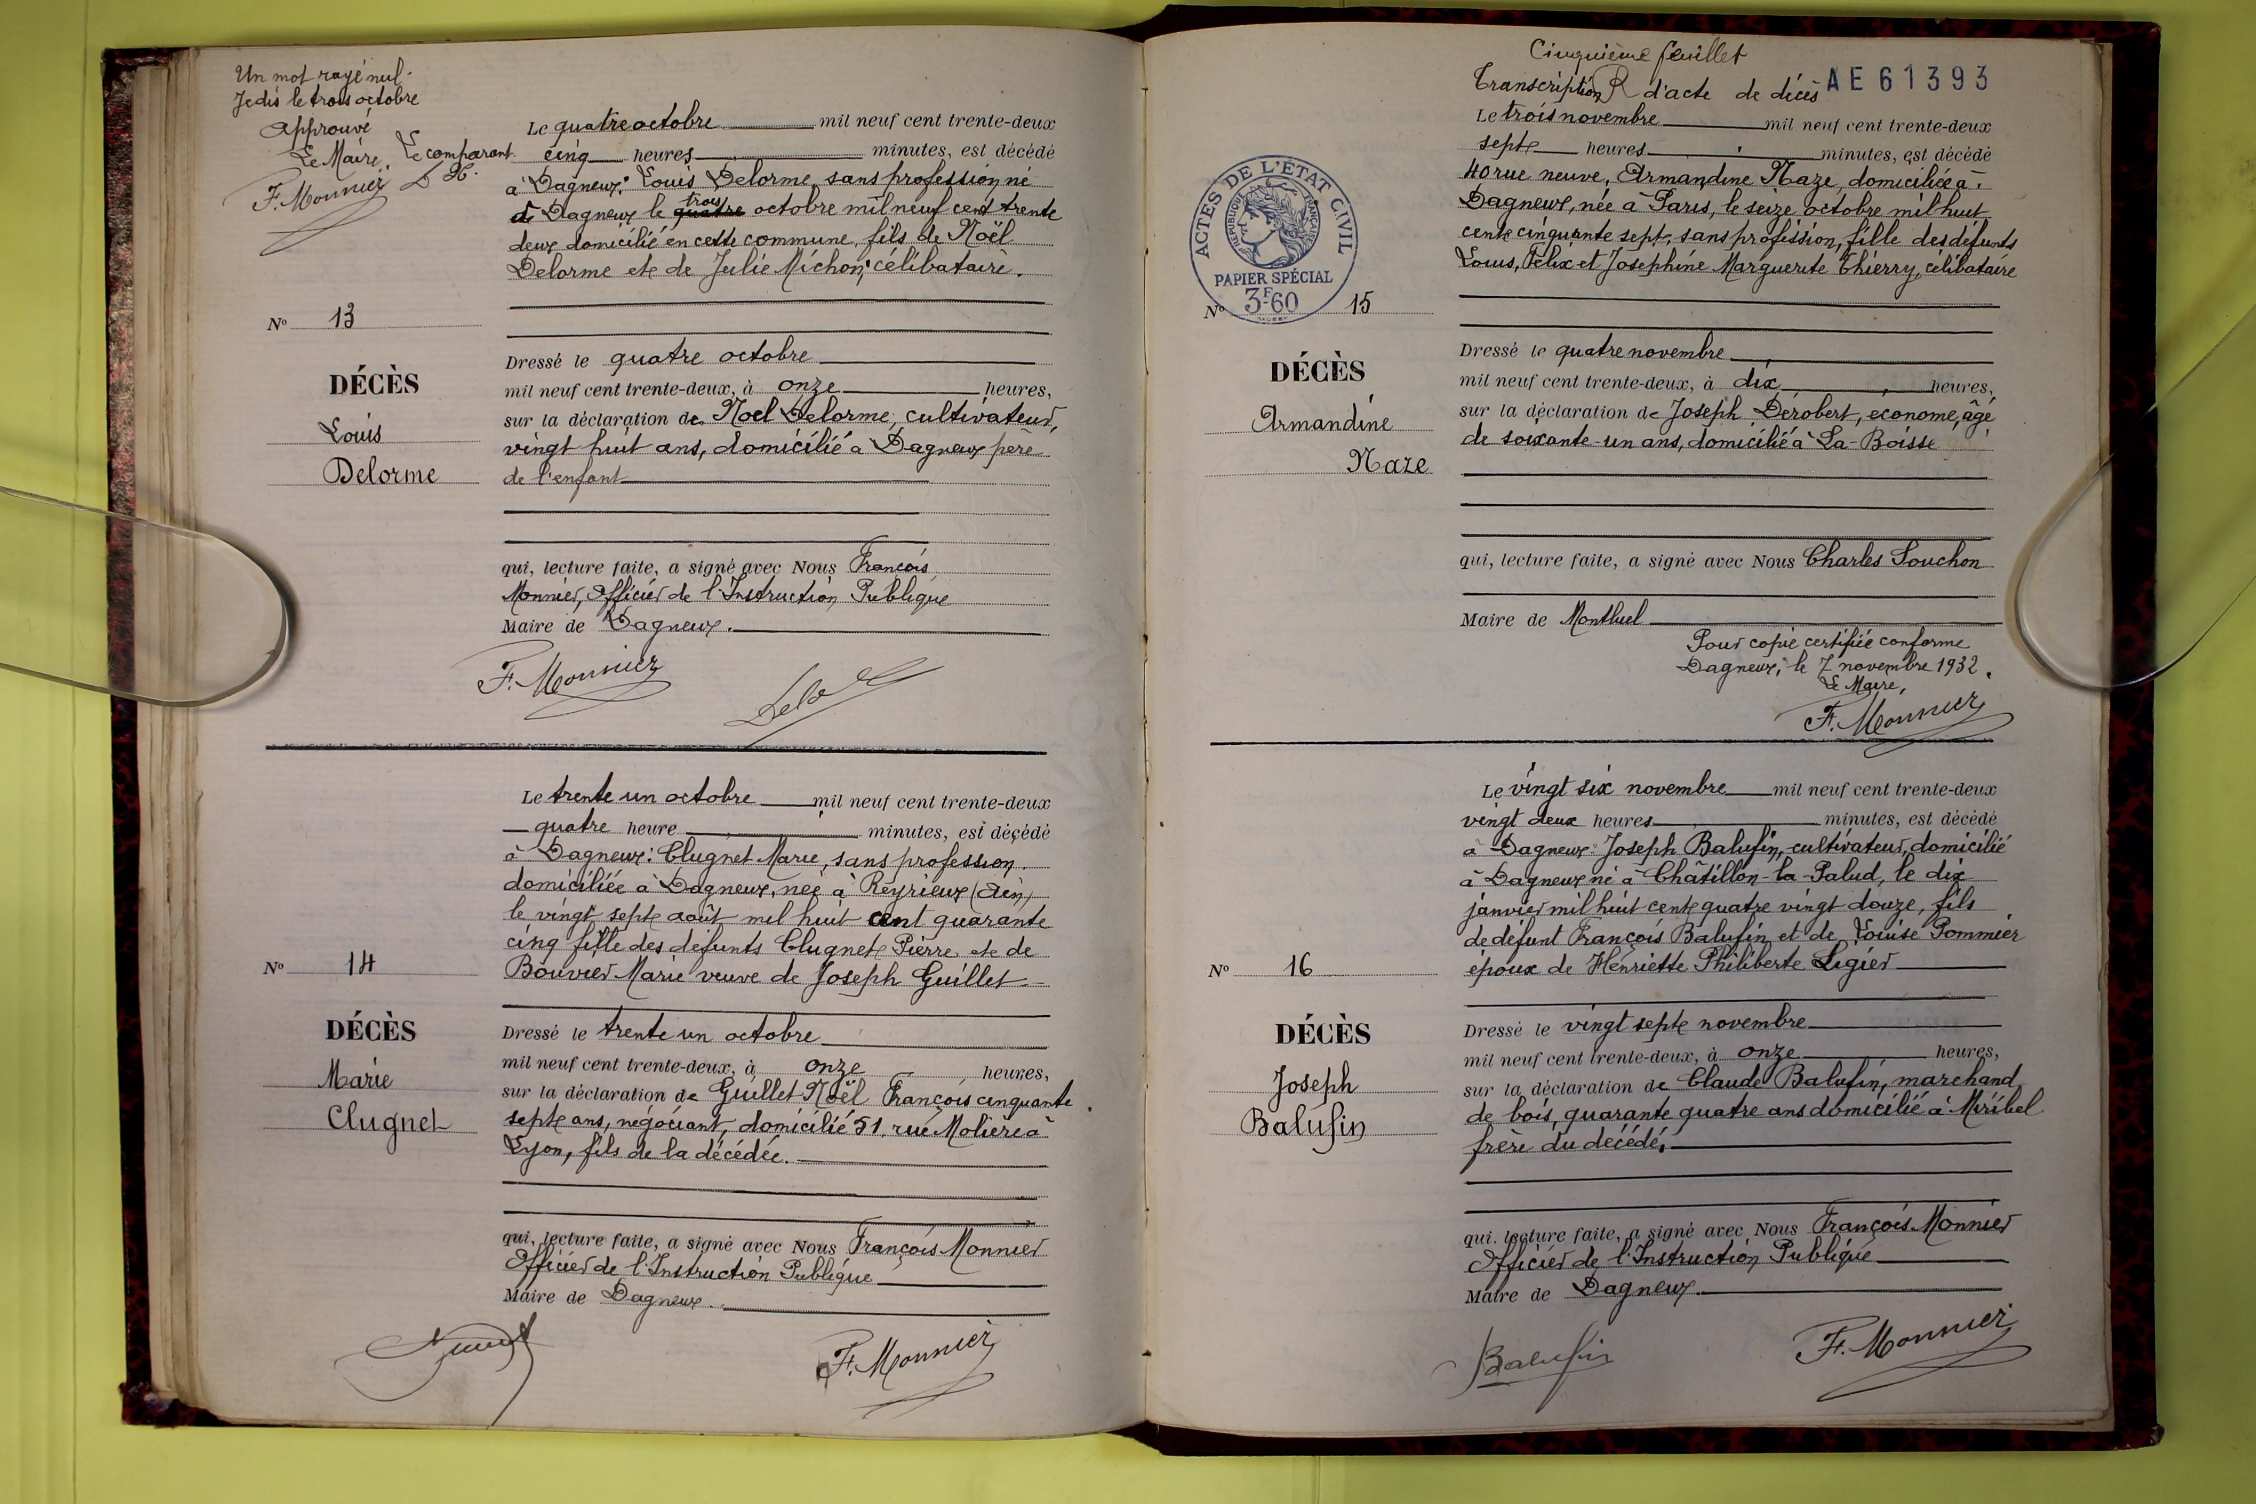 Un mot rayé nul.
Je dis le trois octobre
Approuvé
Le Maire, Le comparant.
F. Monnier
Le quatre octobre mil neuf cent trente-deux
cinq heures minutes, est décédé
à Dagneux: Louis Delorme, sans profession né
à Dagneux le quatre trois octobre mil neuf cent trente
deux domicilié en cette commune, fils de Noël
Delorme et de Julie Michon, célibataire.
No 13
DÉCÈS
Louis
Delorme
Dressé le quatre octobre
mil neuf cent trente-deux, à onze heures,
sur la déclaration de Noël Delorme, cultivateur,
vingt huit ans, domicilié à Dagneux père
de l'enfant
qui, lecture faite, a signé avec Nous François
Monnier, Officier de l'Instruction Publique
Maire de Dagneux.
F. Monnier
Le trente un octobre mil neuf cent trente-deux
quatre heure minutes, est décédé
à Dagneux: Clugnet Marie, sans profession.
domiciliée à Dagneux, née à Reyrieux (Ain)
le vingt sept août mil huit cent quarante
cinq fille des défunts Clugnet Pierre et de
Bouvier Marie veuve de Joseph Guillet
No 14
DÉCÈS
Marie
Clugnet
Dressé le trente un octobre
mil neuf cent trente-deux, à onze heures,
sur la déclaration de Guillet Noël François cinquante
sept ans, négociant, domicilié 51. rue Molière à
Lyon, fils de la décédée.
qui, lecture faite, a signé avec Nous François Monnier
Officier de l'Instruction Publique
Maire de Dagneux.
F. Monnier
Cinquième feuillet
Transcription d'acte de décès AE61393
Le trois novembre mil neuf cent trente-deux
sept heures minutes, est décédé
40 rue neuve, Armandine Naze, domiciliée à
Dagneux, née à Paris, le seize octobre mil huit
cent cinquante sept, sans profession, fille des défunts
Louis, Félix et Josephine Marguerite Thierry, célibataire
ACTES DE L'ÉTAT CIVIL
RÉPUBLIQUE FRANÇAISE
PAPIER SPÉCIAL
3F60
No 15
DÉCÈS
Armandine
Naze
Dressé le quatre novembre
mil neuf cent trente-deux, à dix heures,
sur la déclaration de Joseph Dérobert, econome, âgé
de soixante-un ans, domicilié à La-Boisse
qui, lecture faite, a signé avec Nous Charles Souchon
Maire de Montluel
Pour copie certifiée conforme
Dagneux, le 7 novembre 1932.
Le Maire,
F. Monnier
Le vingt six novembre mil neuf cent trente-deux
vingt deux heures minutes, est décédé
à Dagneux: Joseph Balufin, cultivateur, domicilié
à Dagneux né à Châtillon-la-Palud, le dix
janvier mil huit cent quatre vingt douze, fils
de défunt François Balufin et de Louise Pommier
époux de Henriette Philiberte Ligier
No 16
DÉCÈS
Joseph
Balufin
Dressé le vingt sept novembre
mil neuf cent trente-deux, à onze heures,
sur la déclaration de Claude Balufin, marchand
de bois, quarante quatre ans domicilié à Miribel
frère du décédé,
qui, lecture faite, a signé avec Nous François Monnier
Officier de l'Instruction Publique
Maire de Dagneux.
Balufin F. Monnier